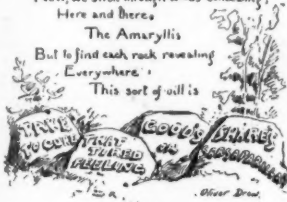 Here and there,
The Amaryllis
But to find each rock revealing
Everywhere
This sort of will is
TAKE
TO CURE
THAT
TIRED
FEELING
GOOD'S
ON
SHARE'S
Oliver Drew.